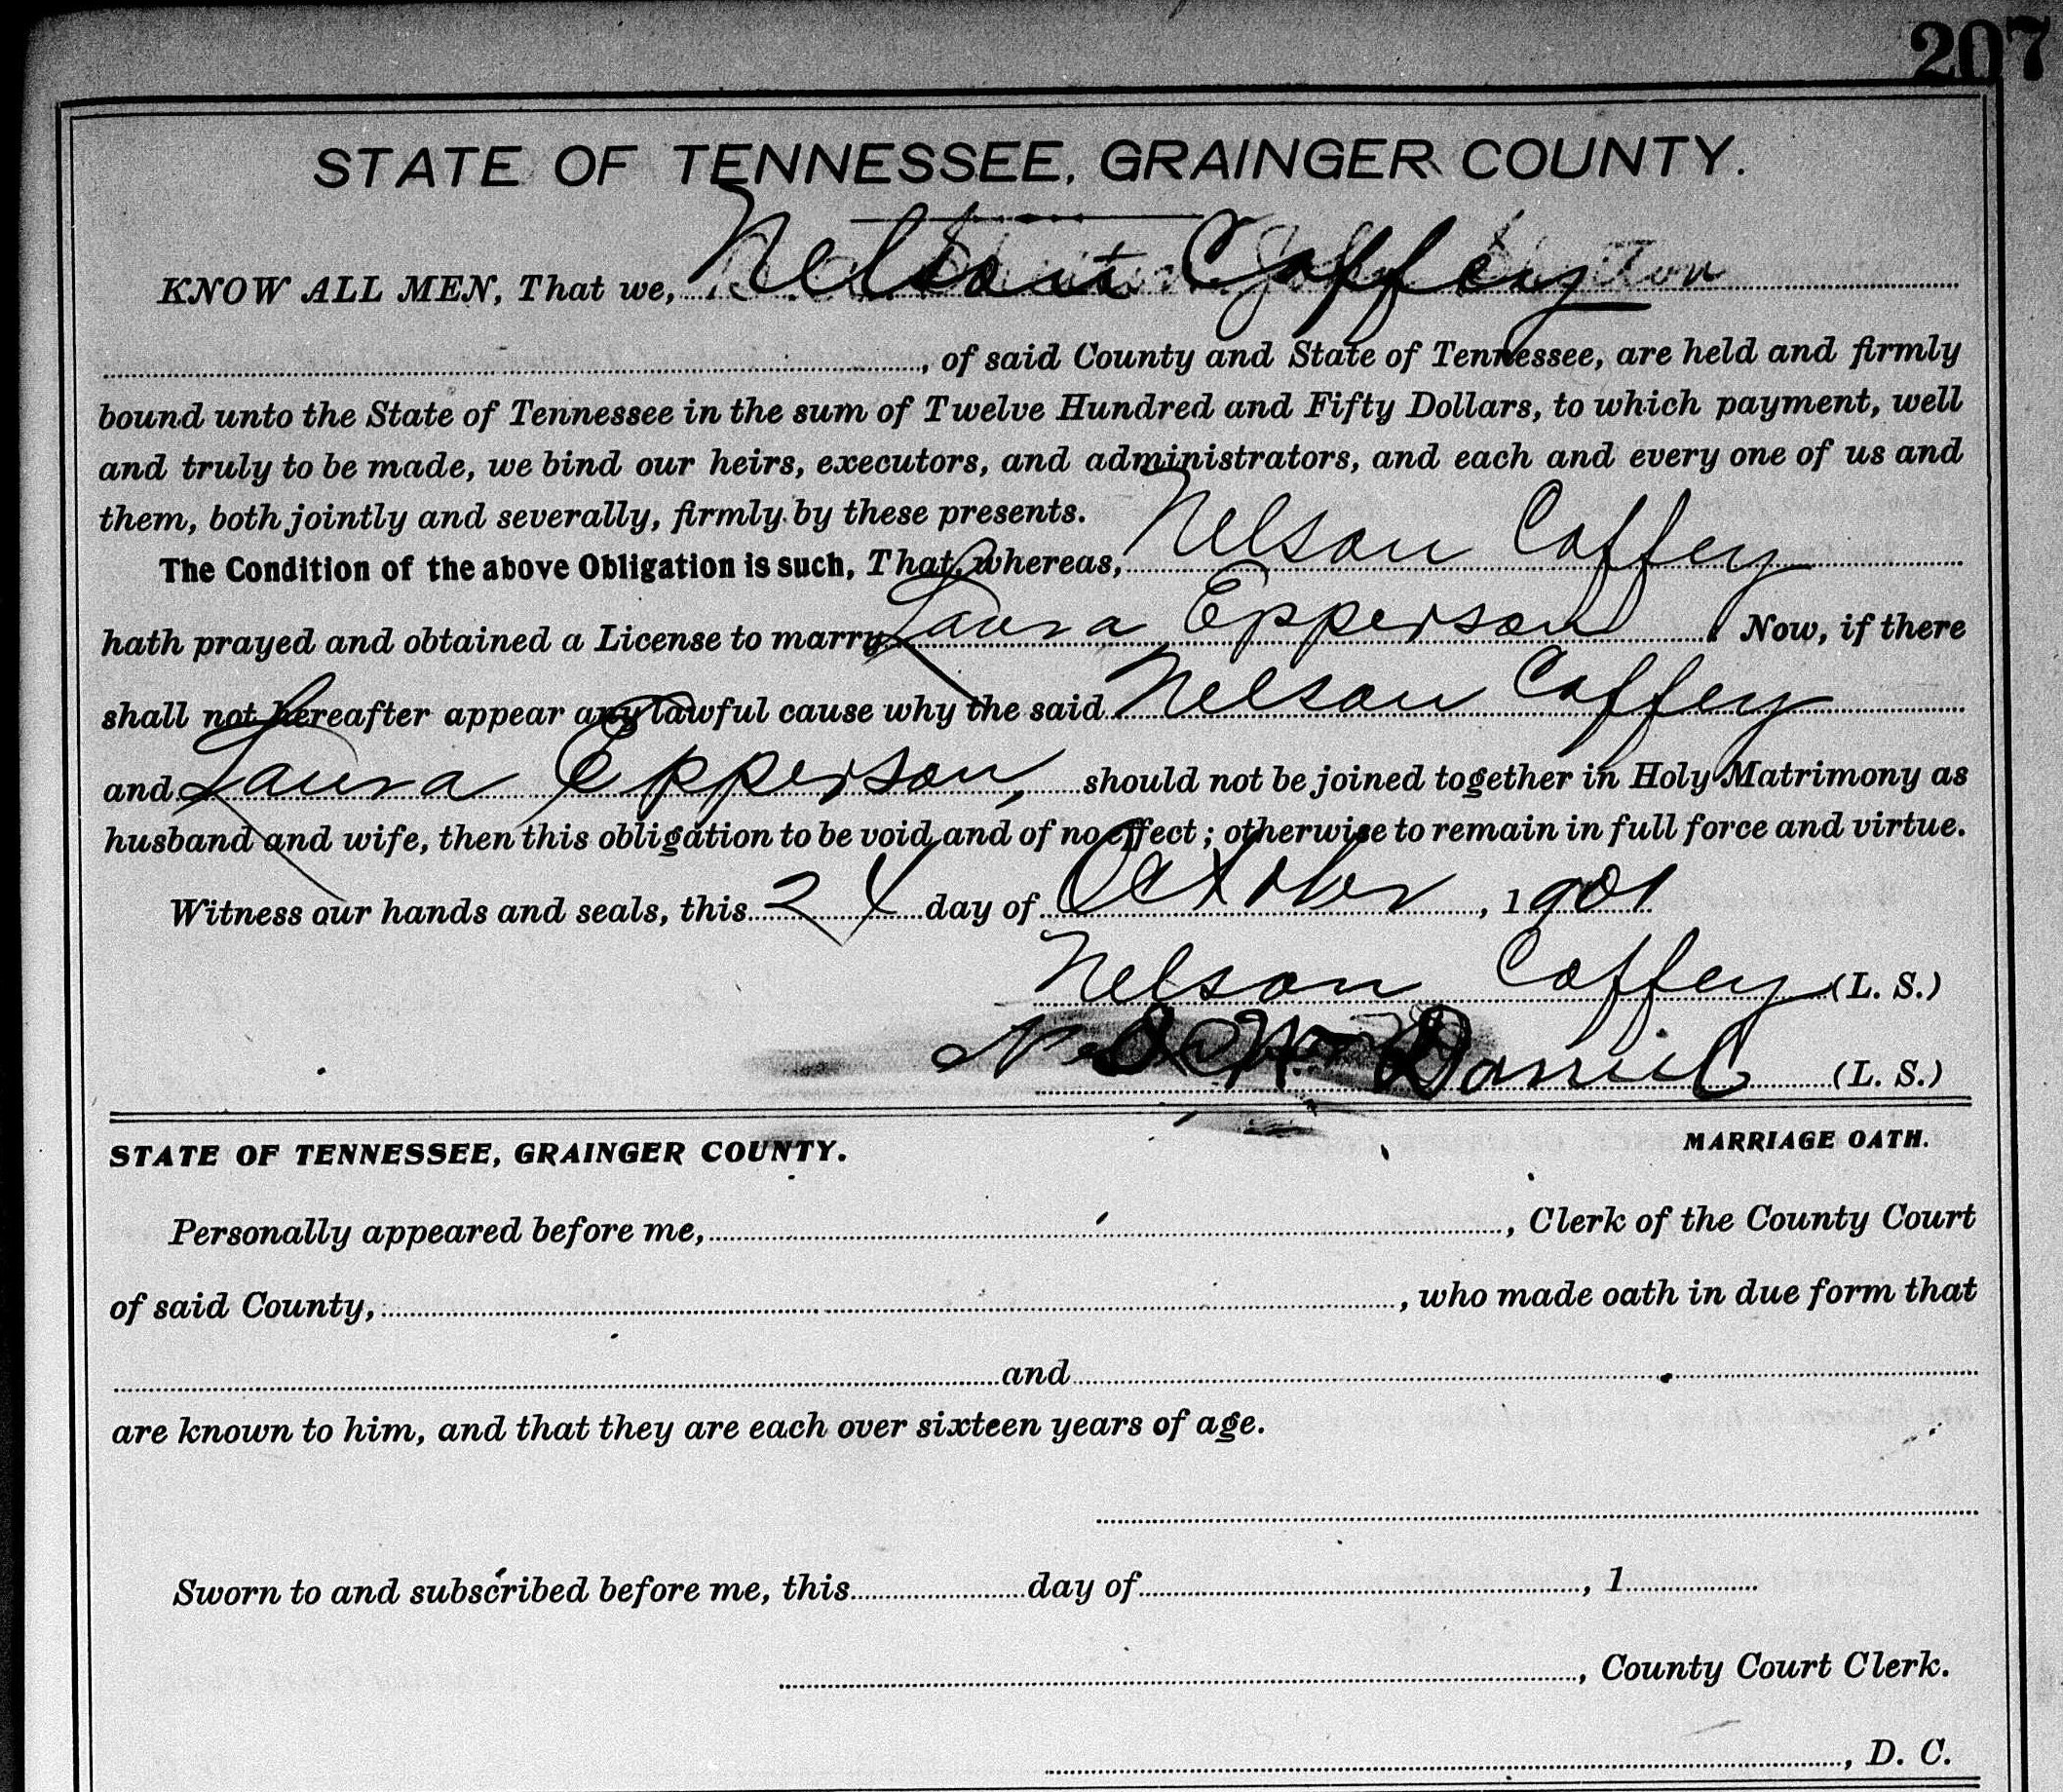 207
STATE OF TENNESSEE, GRAINGER COUNTY.
KNOW ALL MEN, That we, Nelson Coffey
, of said County and State of Tennessee, are held and firmly
bound unto the State of Tennessee in the sum of Twelve Hundred and Fifty Dollars, to which payment, well
and truly to be made, we bind our heirs, executors, and administrators, and each and every one of us and
them, both jointly and severally, firmly by these presents.
The Condition of the above Obligation is such, That, whereas, Nelson Coffey
hath prayed and obtained a License to marry Laura Epperson. Now, if there
shall not hereafter appear any lawful cause why the said Nelson Coffey
and Laura Epperson, should not be joined together in Holy Matrimony as
husband and wife, then this obligation to be void and of no effect; otherwise to remain in full force and virtue.
Witness our hands and seals, this 24 day of October, 1901
Nelson Coffey (L. S.)
Daniel (L. S.)
STATE OF TENNESSEE, GRAINGER COUNTY. MARRIAGE OATH.
Personally appeared before me, , Clerk of the County Court
of said County, , who made oath in due form that
and
are known to him, and that they are each over sixteen years of age.
Sworn to and subscribed before me, this day of , 1
, County Court Clerk.
, D. C.